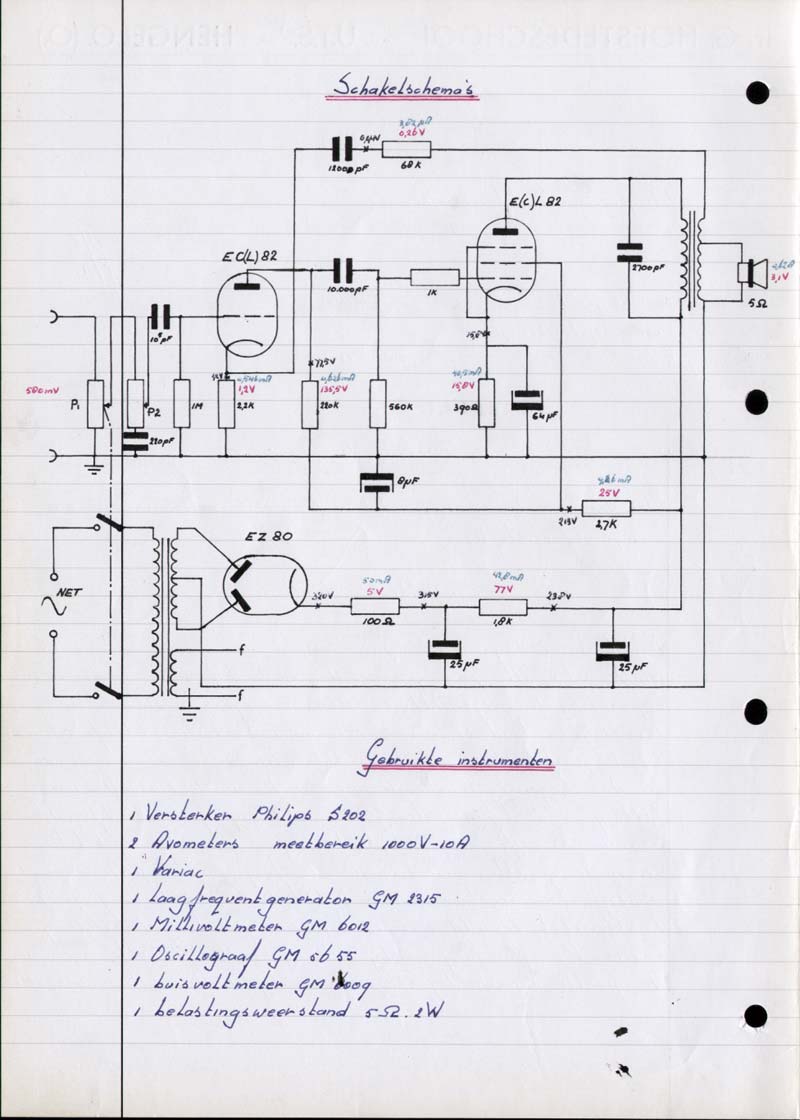 Schakelschema's
0,26V
12000pF
68K
E(C)L 82
EC(L)82
2700pF
3,1V
5Ω
10.000pF
1K
580mV
P1
P2
1,2V
135,5V
15,8V
1M
2,2K
220K
560K
390Ω
64µF
220pF
8µF
25V
213V
2,7K
EZ 80
NET
320V
50mA
5V
315V
77V
238V
100Ω
1,8K
25µF
25µF
f
f
Gebruikte instrumenten
1 Versterker Philips S202
2 Avometers meetbereik 1000V-10A
1 Variac
1 Laagfrequentgenerator GM 2315
1 Millivoltmeter GM 6012
1 Oscillograaf GM 5655
1 buisvoltmeter GM 6009
1 belastingsweerstand 5Ω. 2W